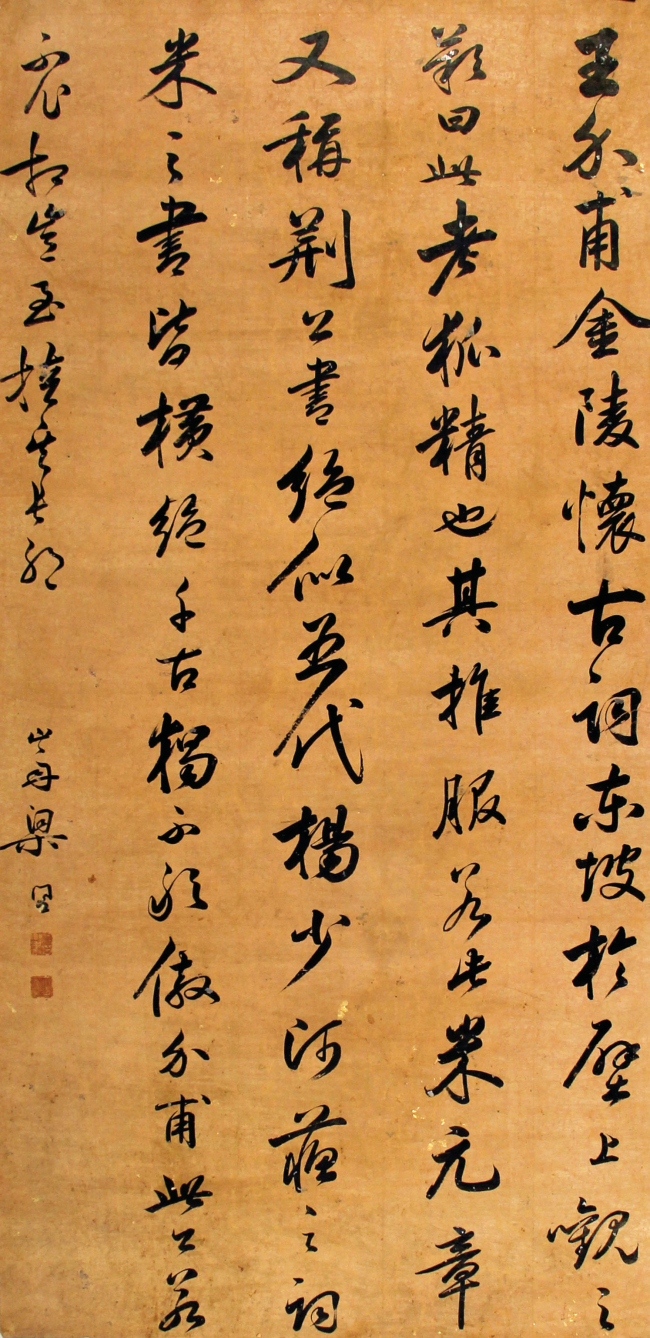 王介甫金陵懷古詞東坡於壁上觀之
歎曰此老狐精也其推服若此米元章
又稱荆公書絕似五代楊少師蘇之詞
米之書皆橫絕千古獨不能傲介甫此公若
不相豈擅其長耶
山舟梁